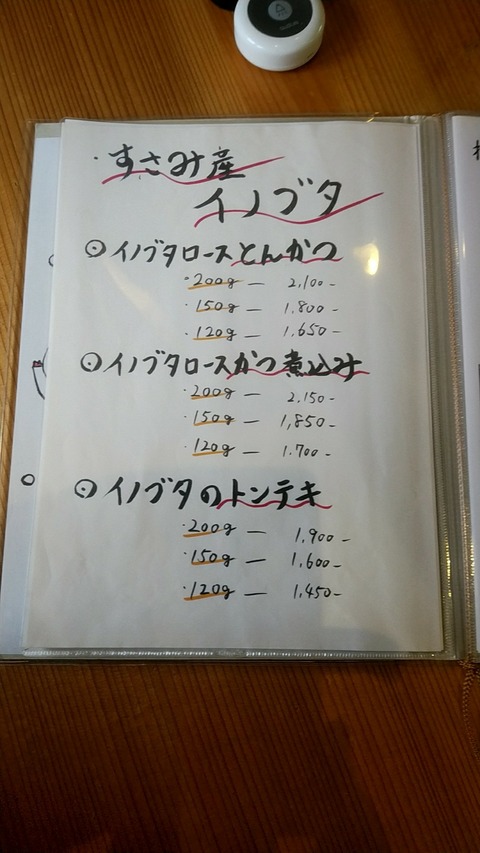 ・すさみ産
イノブタ
⊙イノブタロースとんかつ
・200g — 2,100-
・150g — 1,800-
・120g — 1,650-
⊙イノブタロースかつ煮込み
・200g — 2,150-
・150g — 1,850-
・120g — 1,700-
⊙イノブタのトンテキ
・200g — 1,900-
・150g — 1,600-
・120g — 1,450-